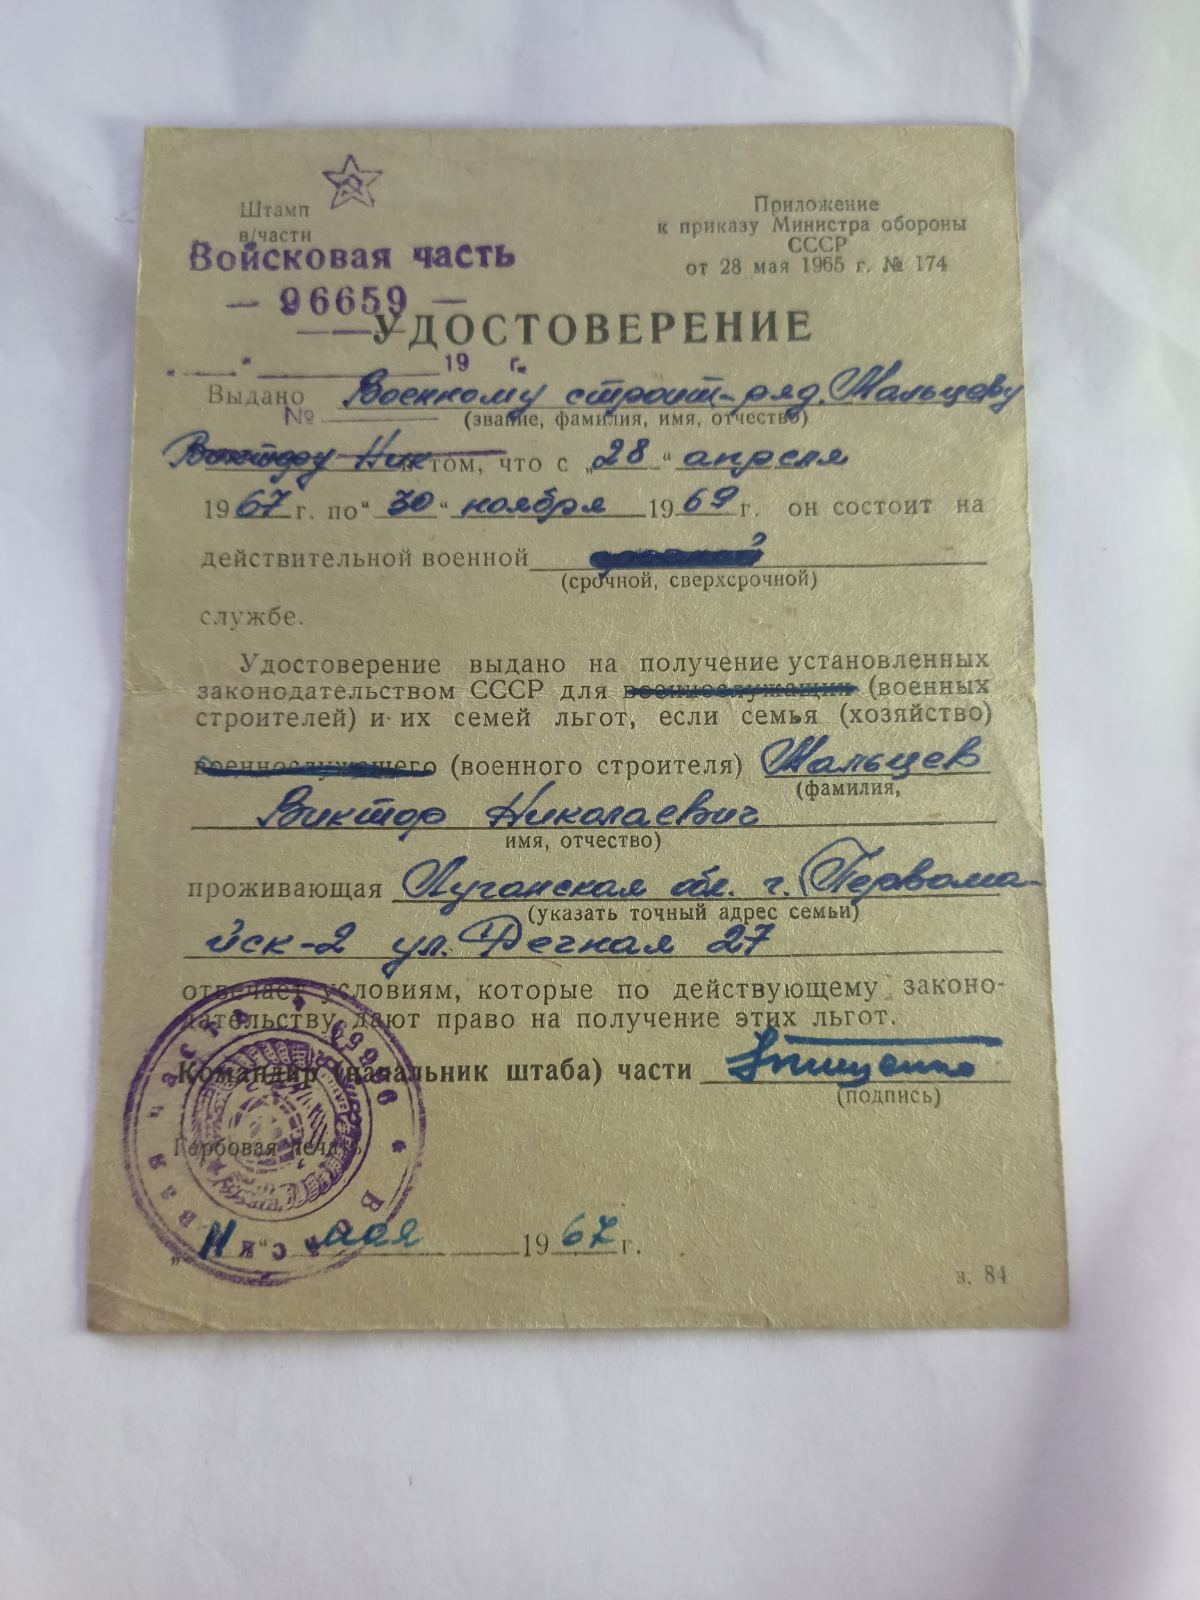 Штамп
в/части
Войсковая часть
— 96659 —
Приложение
к приказу Министра обороны
СССР
от 28 мая 1965 г. № 174
УДОСТОВЕРЕНИЕ
19 г.
№
Выдано Военному строит-ряд. Мальцеву
(звание, фамилия, имя, отчество)
Виктору Ник том, что с „28“ апреля
1967 г. по “30“ ноября 1969 г. он состоит на
действительной военной
(срочной, сверхсрочной)
службе.
Удостоверение выдано на получение установленных
законодательством СССР для военнослужащих (военных
строителей) и их семей льгот, если семья (хозяйство)
военнослужащего (военного строителя) Мальцев
(фамилия,
Виктор Николаевич
имя, отчество)
проживающая Луганская обл. г. Первома-
(указать точный адрес семьи)
йск-2 ул. Речная 27
отвечает условиям, которые по действующему законо-
дательству дают право на получение этих льгот.
Командир (начальник штаба) части
(подпись)
Гербовая печать
Войсковая часть 96659
„11“ мая 1967 г.
з. 84